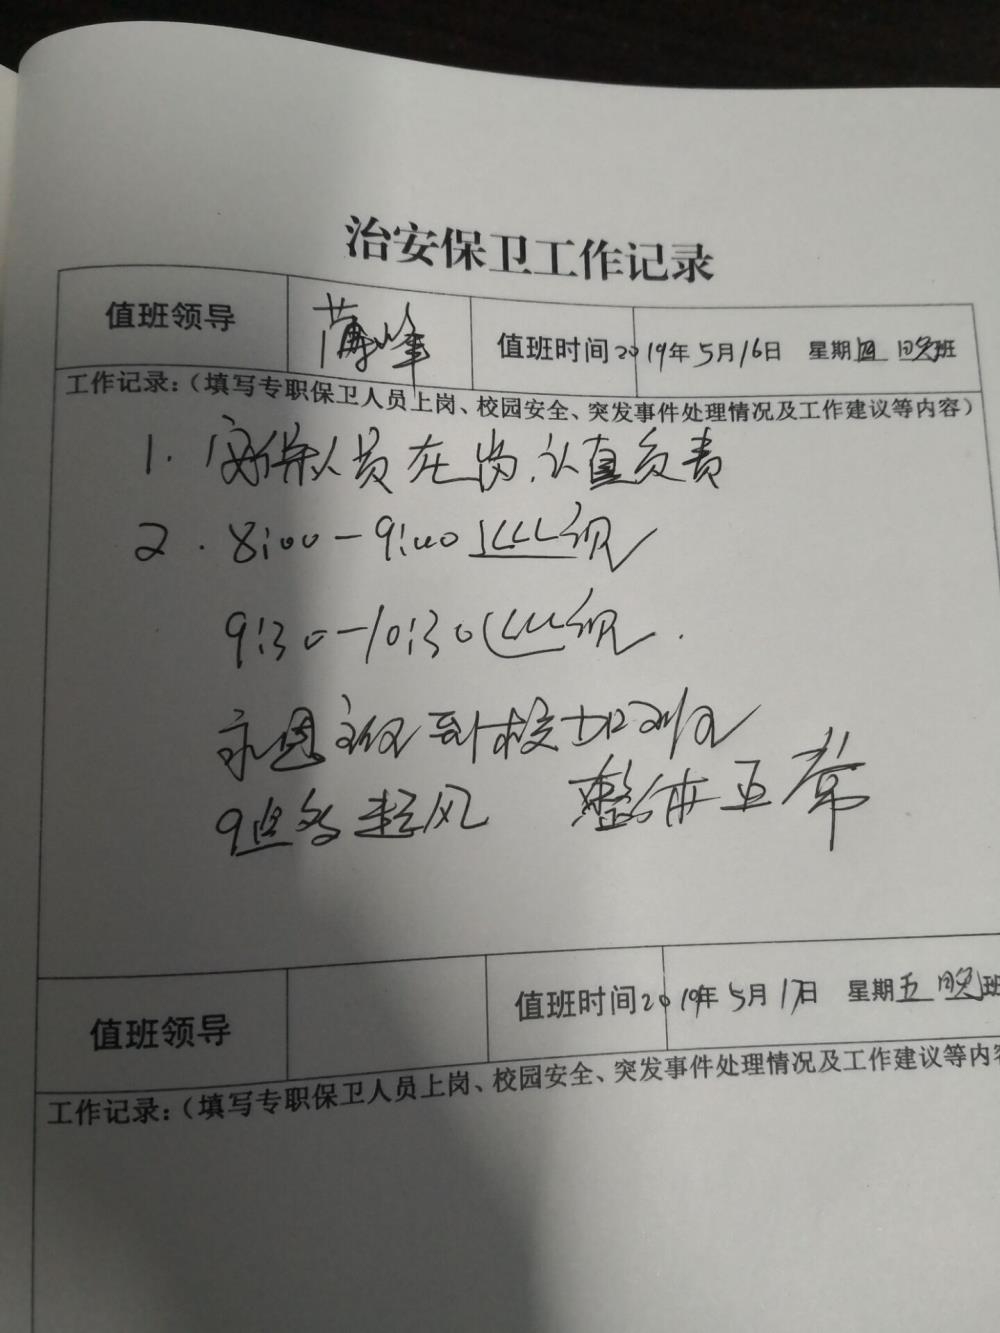 治安保卫工作记录
值班领导 薄峰 值班时间 2019年5月16日 星期四 晚班
工作记录:(填写专职保卫人员上岗、校园安全、突发事件处理情况及工作建议等内容)
1. 安保人员在岗,认真负责
2. 8:00-9:00巡视
9:30-10:30巡视.
到校
起风 整体正常
值班领导 值班时间 2019年5月17日 星期五 晚班
工作记录:(填写专职保卫人员上岗、校园安全、突发事件处理情况及工作建议等内容